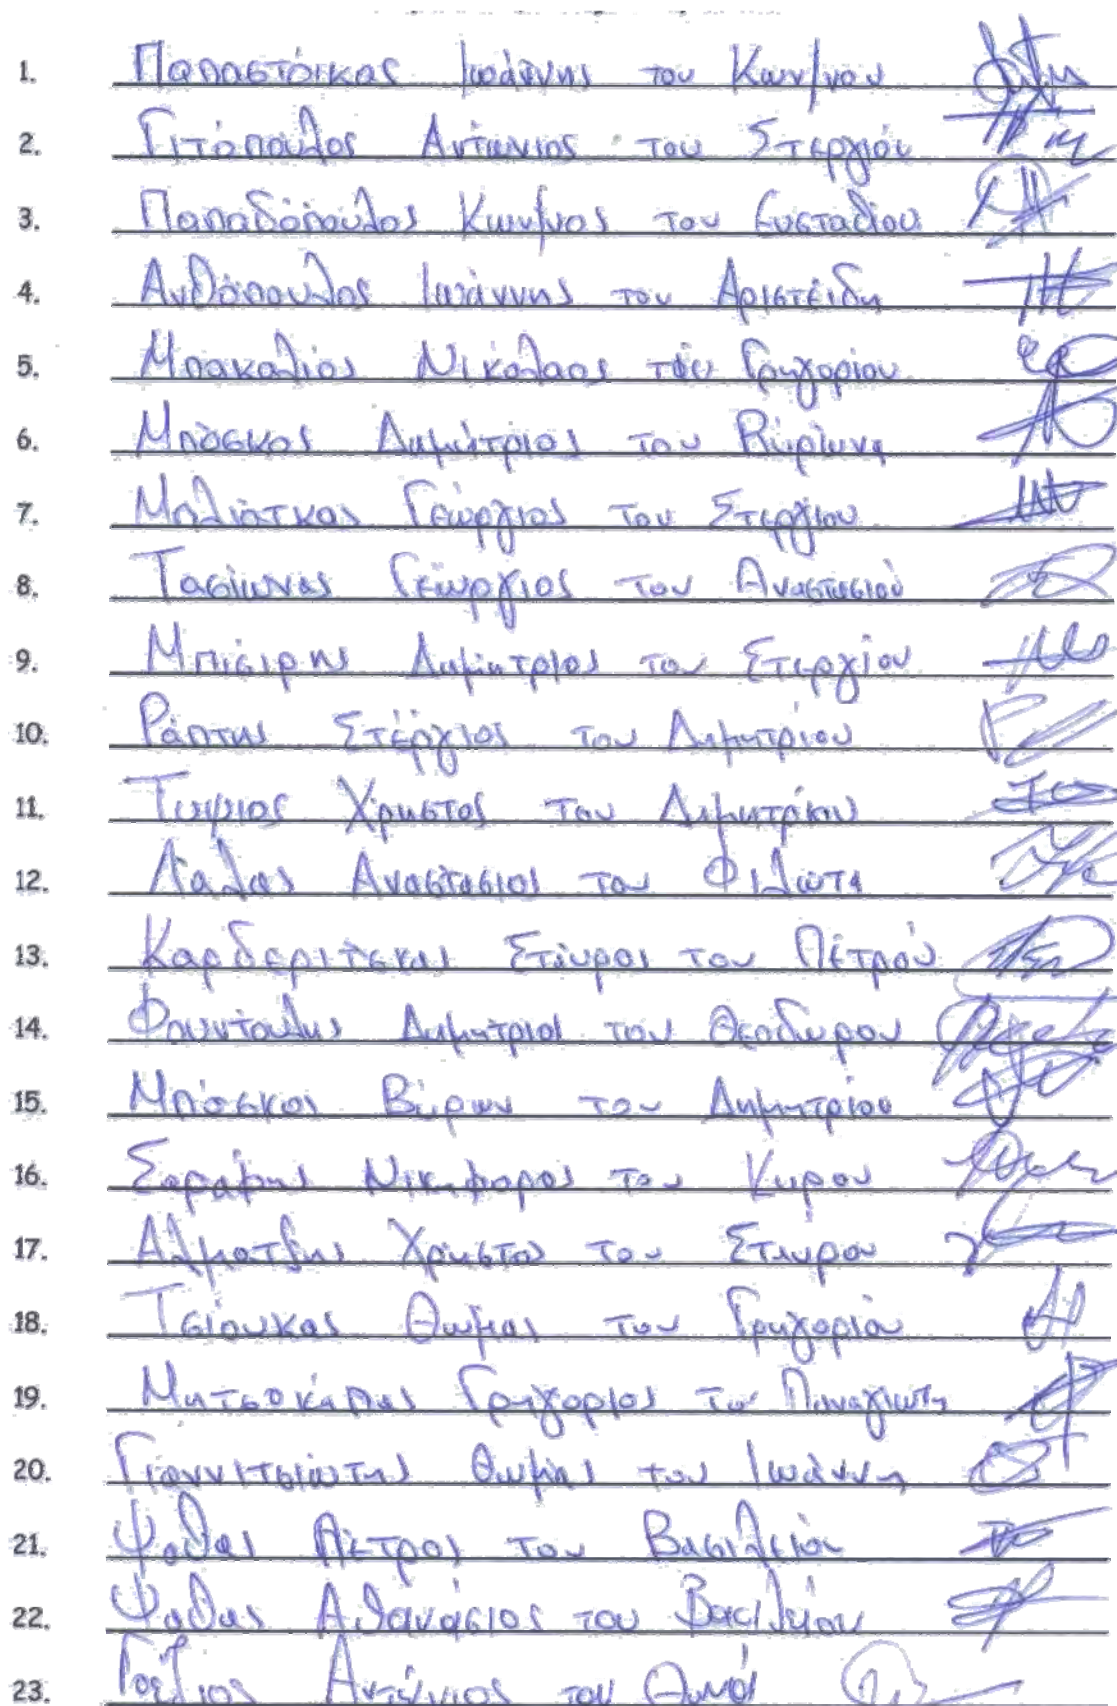 1. Παπαστόικας Ιωάννης του Κων/νου
2. Γιτόπουλος Αντώνιος του Στεργίου
3. Παπαδόπουλος Κων/νος του Ευσταθίου
4. Ανθόπουλος Ιωάννης του Αριστείδη
5. Μπακαλιός Νικόλαος του Γρηγορίου
6. Μπόσκος Δημήτριος του Βύρωνα
7. Μαλιάτκος Γεώργιος του Στεργίου
8. Τασιώνας Γεώργιος του Αναστασίου
9. Μπίσιρης Δημήτριος του Στεργίου
10. Ράπτης Στέργιος του Δημητρίου
11. Χρήστος του Δημητρίου
12. Λάλας Αναστάσιος του Φιλώτα
13. Καρδερίτσκας Σταύρος του Πέτρου
14. Φουντούλης Δημήτριος του Θεοδώρου
15. Μπόσκος Βύρων του Δημητρίου
16. Σαράφης Νικηφόρος του Κύρου
17. Αλματζής Χρήστος του Σταύρου
18. Τσιούκας Θωμάς του Γρηγορίου
19. Μητσοκάπας Γρηγόριος του Παναγιώτη
20. Γιαννιτσιώτης Θωμάς του Ιωάννη
21. Ψαθάς Πέτρος του Βασιλείου
22. Ψαθάς Αθανάσιος του Βασιλείου
23. Αντώνιος του Θωμά